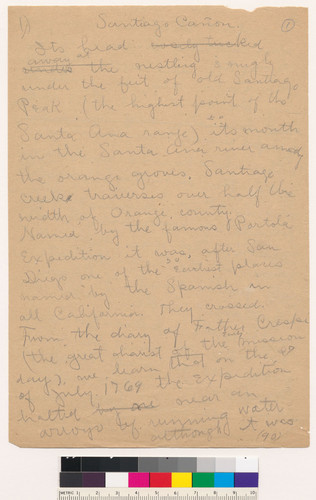 1) Santiago Cañon. 1
Its head tucked
away the nestling snugly
under the feet of old Santiago
Peak (the highest point of the
Santa Ana range) its mouth
in the Santa Ana river among
the orange groves. Santiago
creek traverses over half the
width of Orange county.
Named by the famous Portola
Expedition it was, after San
Diego one of the earliest places
named by the Spanish in
all California. They crossed.
From the diary of Father Crespi
(the great diarist of the mission
days), we learn that on the
of July, 1769 the Expedition
halted near an
arroyo of running water
although it was
(90)